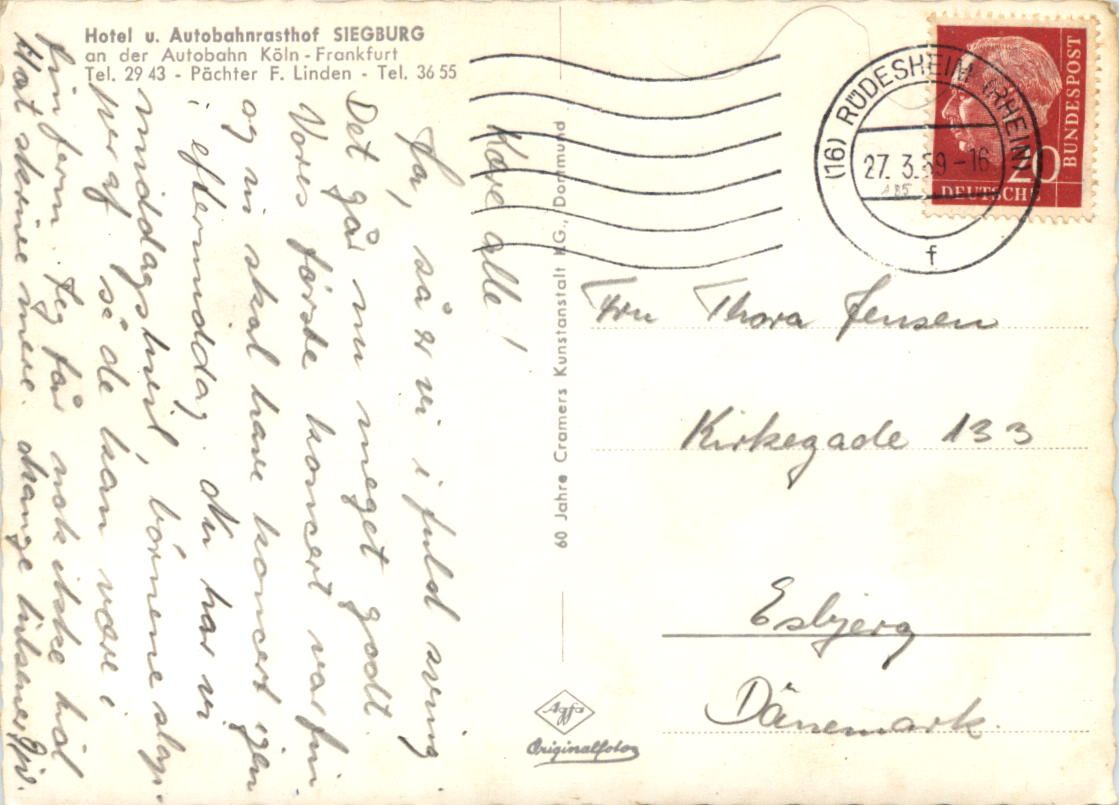 Hotel u. Autobahnrasthof SIEGBURG
an der Autobahn Köln - Frankfurt
Tel. 29 43 - Pächter F. Linden - Tel. 36 55
Kære alle!
Ja, så er vi i fuld sving.
Det går nu meget godt.
Vores første koncert var fin
og vi skal have koncert igen
i eftermiddag. Nu har vi
middagshvil, børnene slap-
per af så de kan være i
fin form. Jeg får nok ikke tid
at skrive mere. Mange hilsener
60 Jahre Cramers Kunstanstalt K.G., Dortmund
Agfa
Originalfoto
(16) RÜDESHEIM (RHEIN)
27. 3. 59 - 16
f
20
DEUTSCHE
BUNDESPOST
Fru Thora Jensen
Kirkegade 133
Esbjerg
Dänemark.